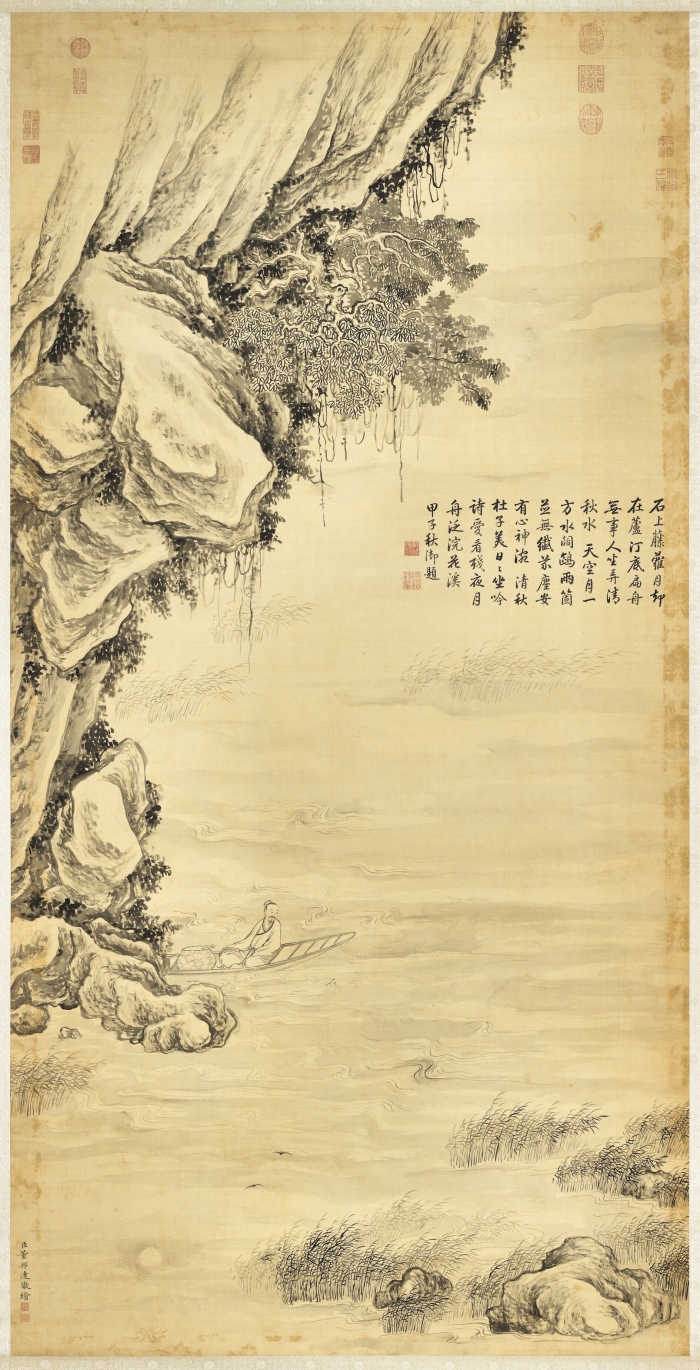 石上藤蘿月却
在蘆汀底扁舟
無事人坐弄清
秋水 天空月一
方水 兩箇
並無纖芥塵安
有心神涴 清秋
杜子美日々坐吟
詩愛看殘夜月
舟泛浣花溪
甲子秋御題
臣董邦達敬繪